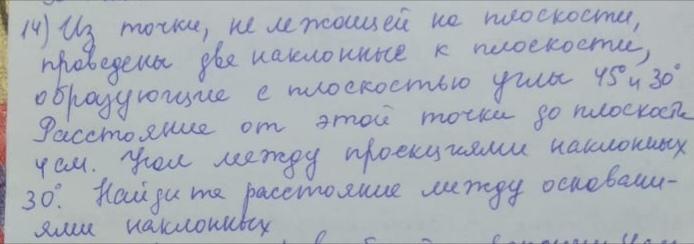 14) Из точки, не лежащей на плоскости,
проведены две наклонные к плоскости,
образующие с плоскостью углы 45° и 30°
Расстояние от этой точки до плоскости
4 см. Угол между проекциями наклонных
30°. Найдите расстояние между основани-
ями наклонных